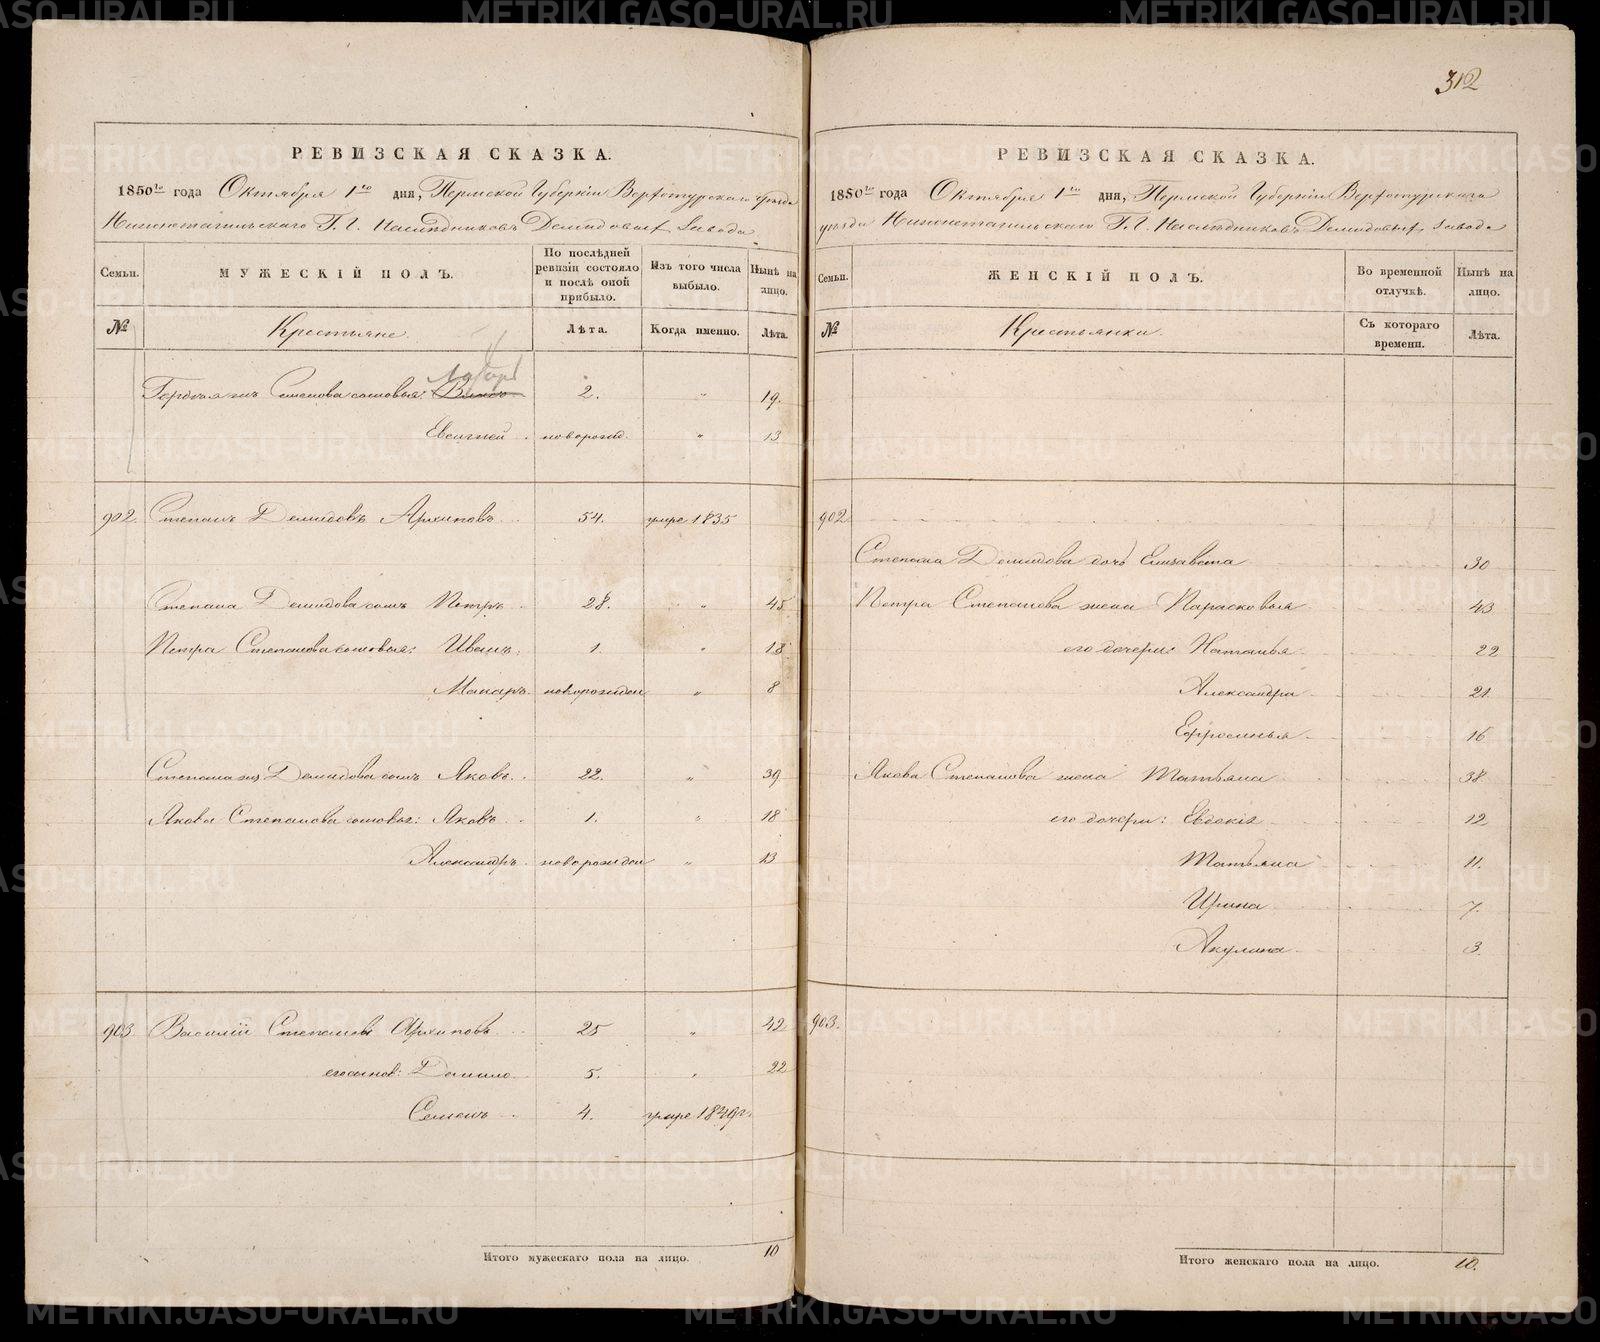 312
РЕВИЗСКАЯ СКАЗКА.
1850го года Октября 1го дня, Пермской Губернiи Верхотурскаго уѣзда
Нижнетагильскаго Г.Г. Наслѣдниковъ Демидовыхъ завода
Семьи. МУЖЕСКIЙ ПОЛЪ. По послѣдней ревизiи состояло и послѣ оной прибыло. Изъ того числа выбыло. Нынѣ на лицо.
№ Крестьяне. Лѣта. Когда именно. Лѣта.
Степанова сыновья: 2. " 19.
Евсигней новорожд. " 13
902. Степанъ Демидовъ Архиповъ 54. умре 1835
Степана Демидова сынъ Петръ 28. " 45
Петра Степанова сыновья: Иванъ 1. " 18
Макаръ новорожден " 8
Степана Демидова сынъ Яковъ 22. " 39
Якова Степанова сыновья: Яковъ 1. " 18
Александръ новорожден " 13
903 Василiй Степановъ Архиповъ 25 " 42
его сынов: Данило 5. " 22
Семенъ 4. умре
Итого мужескаго пола на лицо. 10
РЕВИЗСКАЯ СКАЗКА.
1850го года Октября 1го дня, Пермской Губернiи Верхотурскаго
уѣзда Нижнетагильскаго Г.Г. Наслѣдниковъ Демидовыхъ завода
Семьи. ЖЕНСКIЙ ПОЛЪ. Во временной отлучкѣ. Нынѣ на лицо.
№ Крестьянки. Съ котораго времени. Лѣта.
902
Степана Демидова дочь Елизавета 30
Петра Степанова жена Парасковья 43
его дочери: Наталья 22
Александра 21.
Ефросинья 16
Якова Степанова жена Татьяна 38
его дочери: Евдокiя 12
Татьяна 11.
Ирина 7.
Акулина 3
903.
Итого женскаго пола на лицо. 10.
METRIKI.GASO-URAL.RU